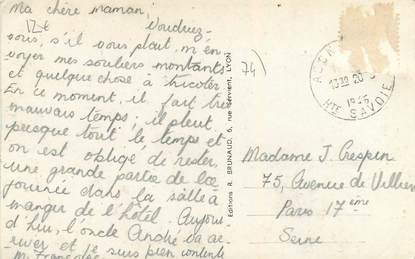 Ma chère maman,
12f
Voudriez-
vous, s'il vous plaît, m'en
voyer mes souliers montants
et quelque chose à tricoter.
En ce moment, il fait très
mauvais temps; il pleut
presque tout le temps et
on est obligé de rester,
une grande partie de la
journée dans la salle à
manger de l'hôtel. Aujour
d'hui, l'oncle André va ar-
river et je suis bien contente
M. Françoise
Editions R. BRUNAUD, 6, rue Servient, LYON
(74)
13H30 20
HTE SAVOIE
Madame J. Crespin
75, Avenue de Villiers
Paris 17ème
Seine